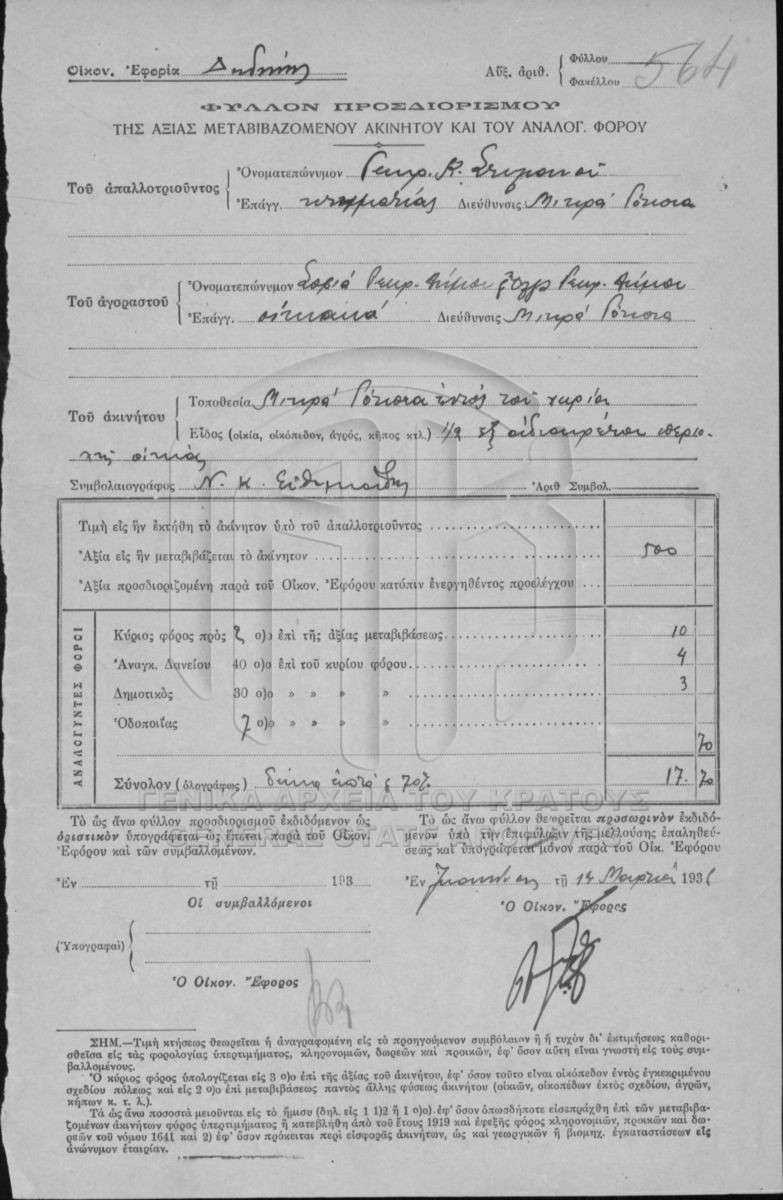 Οἰκον. Ἐφορία
Αὔξ. ἀριθ. { Φύλλου
Φακέλλου 564
ΦΥΛΛΟΝ ΠΡΟΣΔΙΟΡΙΣΜΟΥ
ΤΗΣ ΑΞΙΑΣ ΜΕΤΑΒΙΒΑΖΟΜΕΝΟΥ ΑΚΙΝΗΤΟΥ ΚΑΙ ΤΟΥ ΑΝΑΛΟΓ. ΦΟΡΟΥ
Τοῦ ἀπαλλοτριοῦντος { Ὀνοματεπώνυμον Γεωρ. Κ.
Ἐπάγγ. κτηματίας Διεύθυνσις Μικρά Γότιστα
Τοῦ ἀγοραστοῦ { Ὀνοματεπώνυμον Σοφιά Γεωρ. Δήμου Γεωρ. Δήμου
Ἐπάγγ. οἰκιακά Διεύθυνσις Μικρά Γότιστα
Τοῦ ἀκινήτου { Τοποθεσία Μικρά Γότιστα ἐντός τοῦ χωρίου
Εἶδος (οἰκία, οἰκόπεδον, ἀγρός, κῆπος κτλ.) 1/2 ἐξ ἀδιαιρέτου
της οἰκίας
Συμβολαιογράφος Ν. Κ. Εὐθυμιάδης Ἀριθ Συμβολ.
Τιμὴ εἰς ἣν ἐκτήθη τὸ ἀκίνητον ὑπὸ τοῦ ἀπαλλοτριοῦντος
Ἀξία εἰς ἣν μεταβιβάζεται τὸ ἀκίνητον 500
Ἀξία προσδιοριζομένη παρὰ τοῦ Οἰκον. Ἐφόρου κατόπιν ἐνεργηθέντος προελέγχου
ΑΝΑΛΟΓΟΥΝΤΕΣ ΦΟΡΟΙ
Κύριος φόρος πρὸς 2 ο)ο ἐπὶ τῆς ἀξίας μεταβιβάσεως 10
Ἀναγκ. Δανείου 40 ο)ο ἐπὶ τοῦ κυρίου φόρου 4
Δημοτικὸς 30 ο)ο » » » » 3
Ὁδοποιΐας 7 ο)ο » » » » 70
Σύνολον (ὁλογράφως) δέκα ἑπτά & 70% 17. 70
ΓΕΝΙΚΑ ΑΡΧΕΙΑ ΤΟΥ ΚΡΑΤΟΥΣ
GENERAL STATE ARCHIVES
Τὸ ὡς ἄνω φύλλον προσδιορισμοῦ ἐκδιδόμενον ὡς
ὁριστικὸν ὑπογράφεται ὡς ἕπεται παρὰ τοῦ Οἰκον.
Ἐφόρου καὶ τῶν συμβαλλομένων.
Ἐν τῇ 193
Οἱ συμβαλλόμενοι
(Ὑπογραφαὶ) {
Ὁ Οἰκον. Ἔφορος
Τὸ ὡς ἄνω φύλλον θεωρεῖται προσωρινὸν ἐκδιδόμενον
ὑπὸ τὴν ἐπιφύλαξιν τῆς μελλούσης ἐπαληθεύσεως
καὶ ὑπογράφεται μόνον παρὰ τοῦ Οἰκ. Ἐφόρου
Ἐν τῇ Μαρτίου 193
Ὁ Οἰκον. Ἔφορος
ΣΗΜ.—Τιμὴ κτήσεως θεωρεῖται ἡ ἀναγραφομένη εἰς τὸ προηγούμενον συμβόλαιον ἢ ἡ τυχὸν δι' ἐκτιμήσεως καθορι-
σθεῖσα εἰς τὰς φορολογίας ὑπερτιμήματος, κληρονομιῶν, δωρεῶν καὶ προικῶν, ἐφ' ὅσον αὕτη εἶναι γνωστὴ εἰς τοὺς συμ-
βαλλομένους.
Ὁ κύριος φόρος ὑπολογίζεται εἰς 3 ο)ο ἐπὶ τῆς ἀξίας τοῦ ἀκινήτου, ἐφ' ὅσον τοῦτο εἶναι οἰκόπεδον ἐντὸς ἐγκεκριμένου
σχεδίου πόλεως καὶ εἰς 2 ο)ο ἐπὶ μεταβιβάσεως παντὸς ἄλλης φύσεως ἀκινήτου (οἰκιῶν, οἰκοπέδων ἐκτὸς σχεδίου, ἀγρῶν,
κήπων κ. τ. λ.).
Τὰ ὡς ἄνω ποσοστὰ μειοῦνται εἰς τὸ ἥμισυ (δηλ. εἰς 1 1)2 ἢ 1 ο)ο). ἐφ' ὅσον ὁπωσδήποτε εἰσεπράχθη ἐπὶ τῶν μεταβιβα-
ζομένων ἀκινήτων φόρος ὑπερτιμήματος ἢ κατεβλήθη ἀπὸ τοῦ ἔτους 1919 καὶ ἐφεξῆς φόρος κληρονομιῶν, προικῶν καὶ δω-
ρεῶν τοῦ νόμου 1641 καὶ 2) ἐφ' ὅσον πρόκειται περὶ εἰσφορᾶς ἀκινήτων, ὡς καὶ γεωργικῶν ἢ βιομηχ. ἐγκαταστάσεων εἰς
ἀνώνυμον ἑταιρίαν.